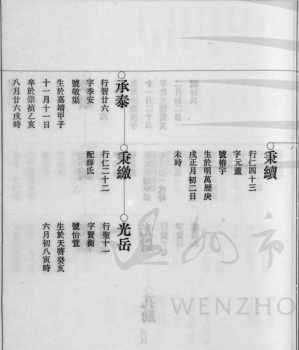 秉纘
行仁四十三
字元藎
號椿宇
生於明萬歷庚
戌正月初二日
未時
承泰
行智廿六
字季安
號敬渠
生於嘉靖甲子
十一月十一日
卒於崇禎乙亥
八月廿六戌時
秉繳
行仁二十二
配薛氏
光岳
行聖十一
字賢衡
號怡萱
生於天啓癸亥
六月初八寅時
温州市
WENZHO